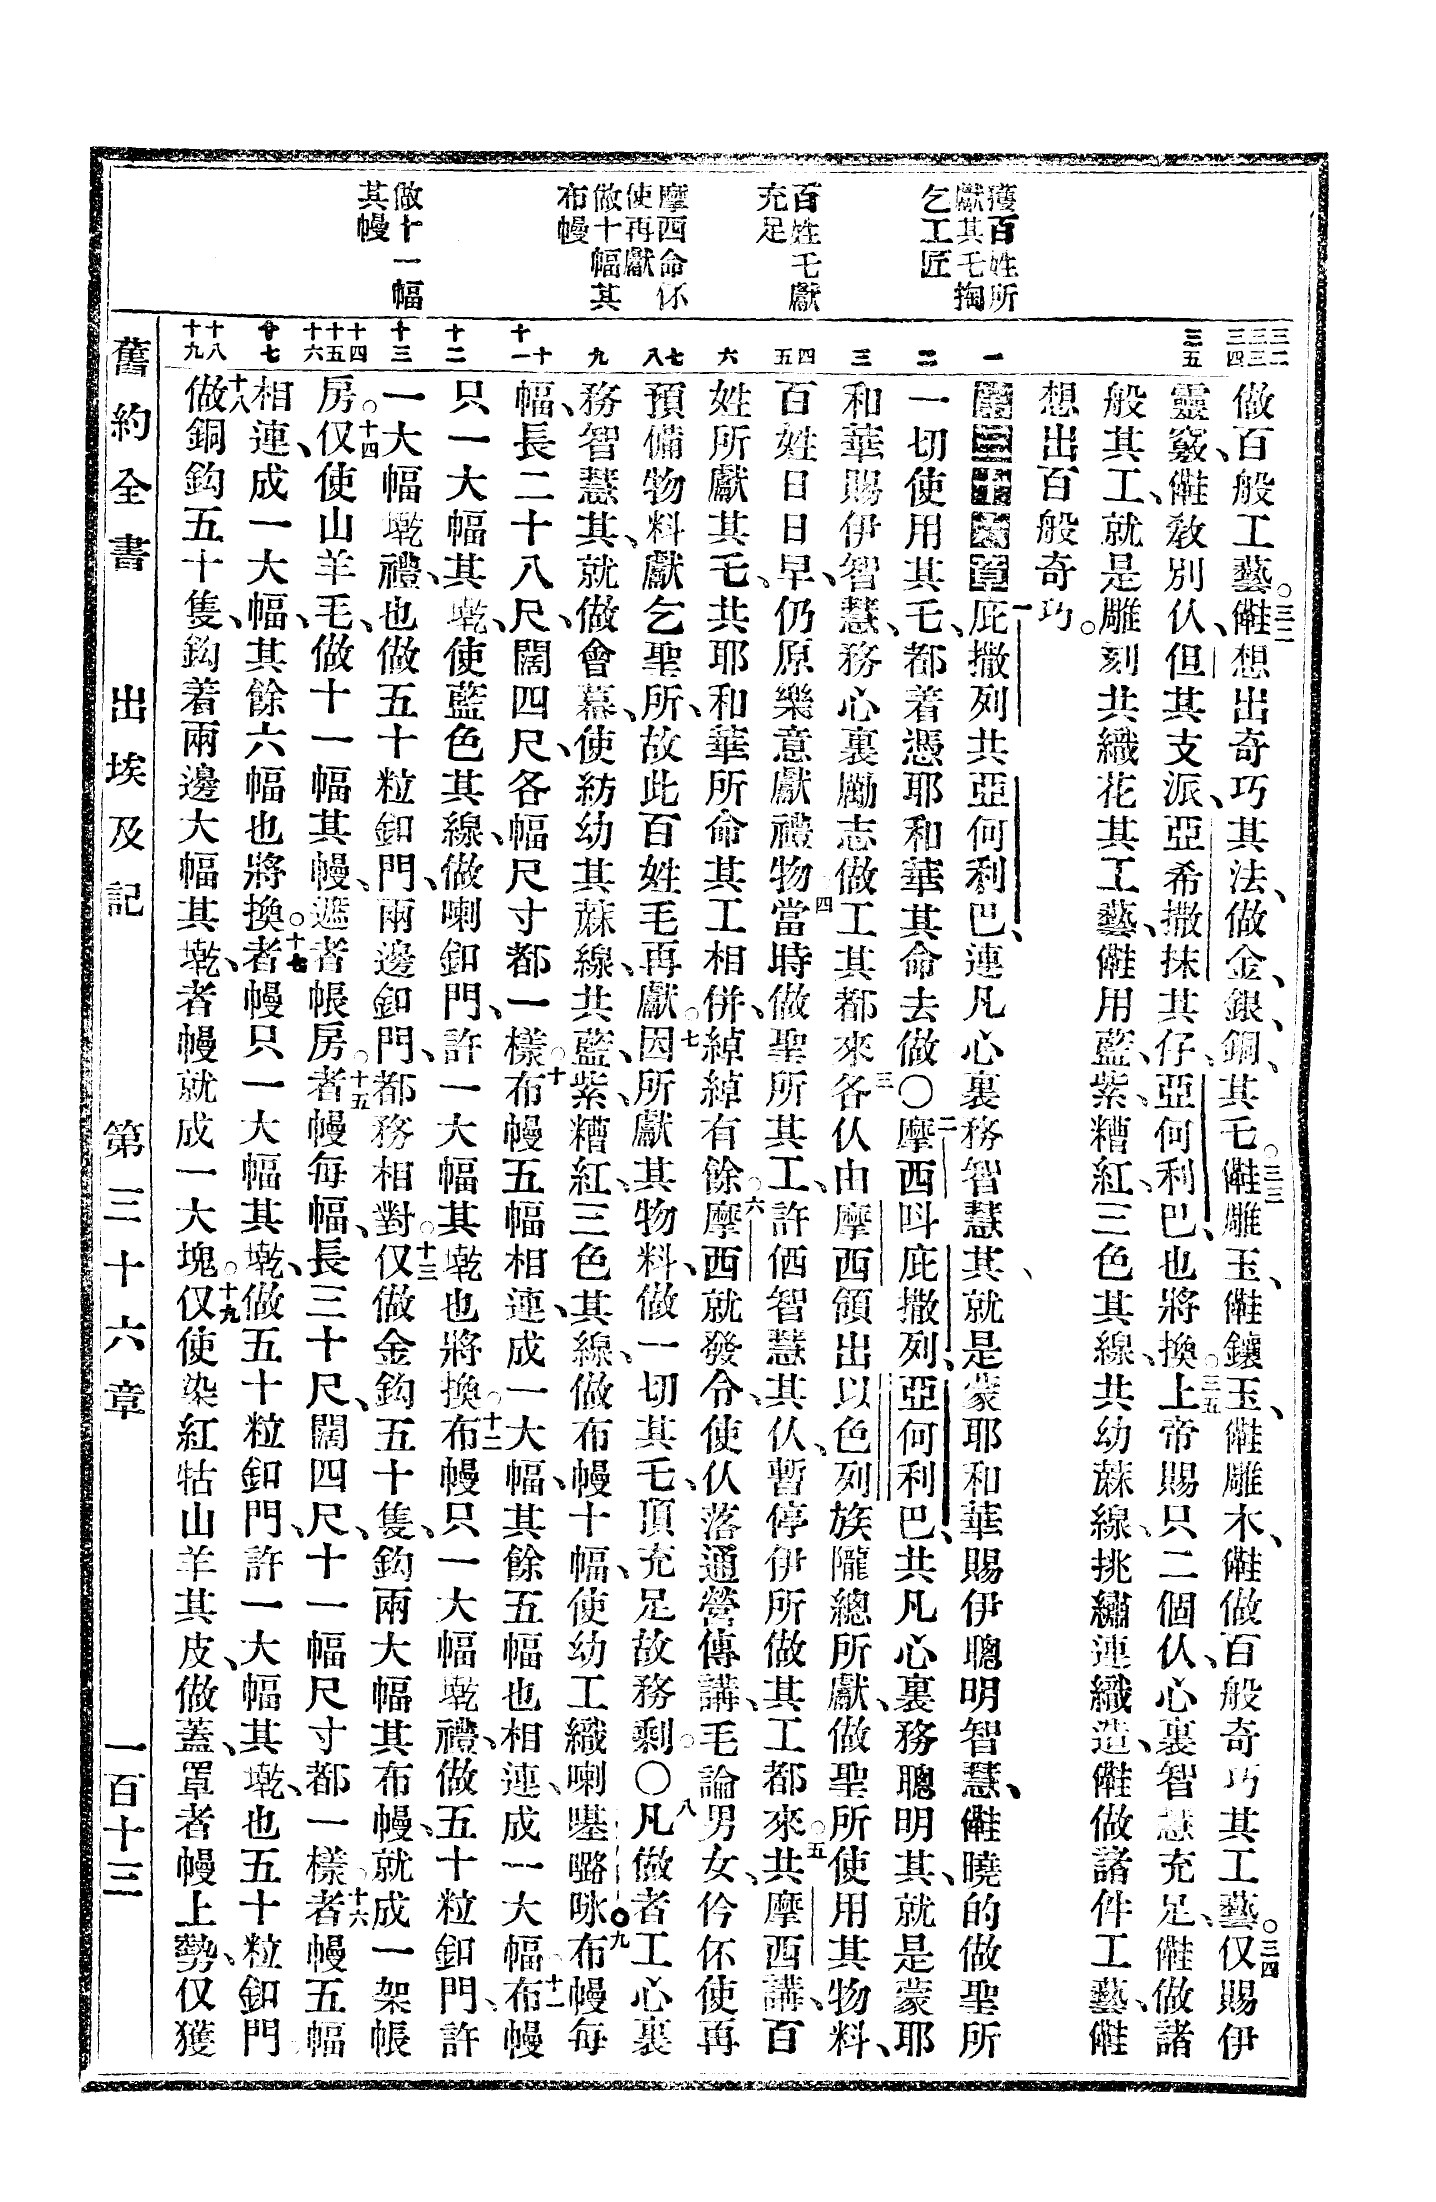 獲百姓所
獻其乇掏
乞工匠
百姓乇獻
充足
摩西命伓
使再獻
做十幅其
布幔
做十一幅
其幔
三二
三三
三四
三五
一
二
三
四
五
六
七
八
九
十
十一
十二
十三
十四
十五
十六
十七
十八
十九
做百般工藝。三二㑚想出奇巧其法、做金、銀、銅、其乇。三三㑚雕玉、㑚鑲玉、㑚雕木、㑚做百般奇巧其工藝。三四仅賜伊
靈竅、㑚敎別仈、但其支派、亞希撒抹其仔、亞何利巴、也將換。三五上帝賜只二個仈、心裏智慧充足、㑚做諸
般其工、就是雕刻共織花其工藝、㑚用藍、紫、糟紅、三色其線、共幼蔴線、挑繡連織造、㑚做諸件工藝、㑚
想出百般奇巧。
第三十六章一庇撒列共亞何利巴、連凡心裏務智慧其、就是蒙耶和華賜伊聰明智慧、㑚曉的做聖所
一切使用其乇、都着憑耶和華其命去做〇二摩西呌庇撒列、亞何利巴、共凡心裏務聰明其、就是蒙耶
和華賜伊智慧、務心裏勵志做工其都來、三各仈由摩西領出以色列族隴總所獻、做聖所使用其物料、
百姓日日早、仍原樂意獻禮物四當時做聖所其工、許儘智慧其仈、暫停伊所做其工都來。五共摩西講、百
姓所獻其乇、共耶和華所命其工相併、綽綽有餘。六摩西就發令、使仈落通營傳講、毛論男女、伱伓使再
預備物料、獻乞聖所、故此百姓毛再獻。七因所獻其物料、做一切其乇、頂充足故務剩。〇八凡做者工心裏
務智慧其、就做會幕、使紡幼其蔴線、共藍、紫、糟紅、三色其線、做布幔十幅、使幼工織喇㗭𡀔㕭。九布幔每
幅、長二十八尺、闊四尺、各幅尺寸都一樣。十布幔五幅相連、成一大幅、其餘五幅也相連、成一大幅。十一布幔
只一大幅其墘、使藍色其線、做喇釦門、許一大幅其墘也將換。十二布幔只一大幅墘禮、做五十粒釦門、許
一大幅墘禮、也做五十粒釦門、兩邊釦門、都務相對。十三仅做金鈎五十隻、鈎兩大幅其布幔、就成一架帳
房。十四仅使山羊毛、做十一幅其幔、遮者帳房。十五者幔每幅、長三十尺、闊四尺、十一幅尺寸都一樣。十六者幔五幅
相連、成一大幅、其餘六幅也將換。十七者幔只一大幅其墘、做五十粒釦門、許一大幅其墘、也五十粒釦門
十八做銅鈎五十隻、鈎着兩邊大幅其墘、者幔就成一大塊。十九仅使染紅牯山羊其皮、做蓋、罩者幔上勢、仅獲
舊約全書 出埃及記 第三十六章 一百十三